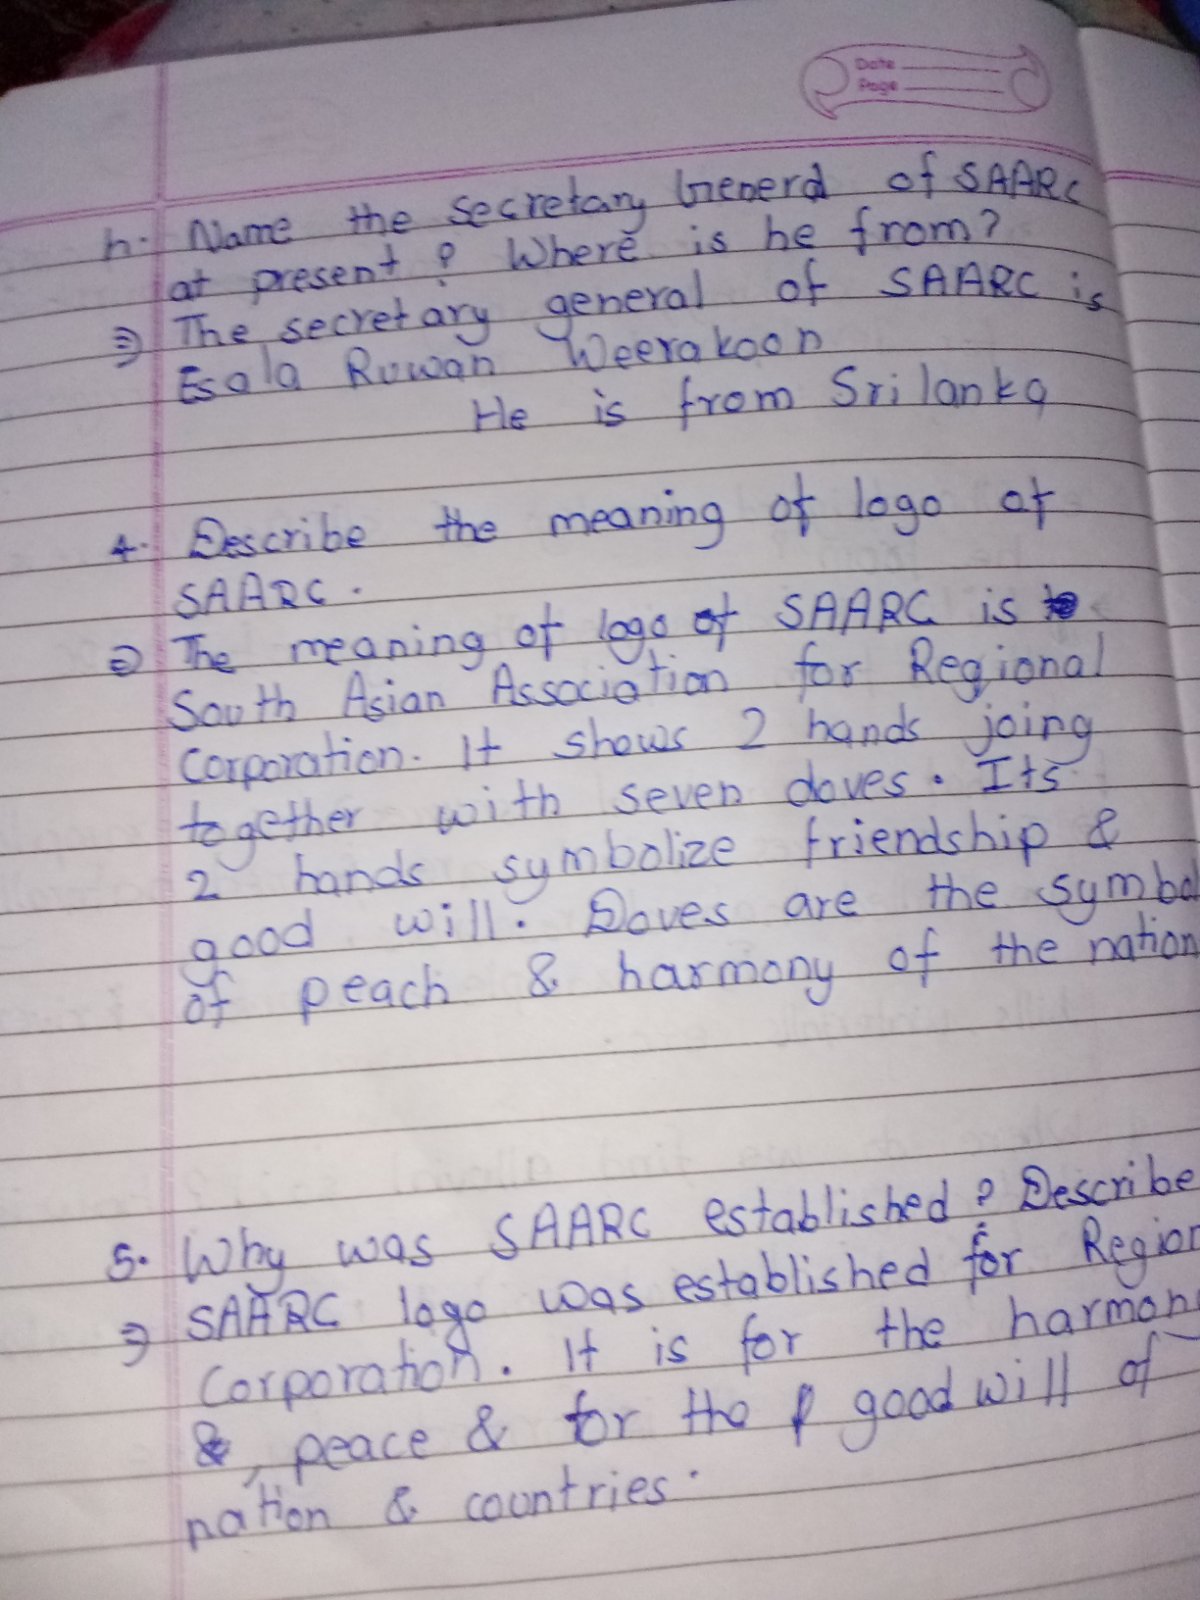 Date
Page
h. Name the secretary Generd of SAARC
at present? Where is he from?
⇒ The secretary general of SAARC is
Esala Ruwan Weerakoon
He is from Srilanka
4. Describe the meaning of logo of
SAARC.
⇒ The meaning of logo of SAARC is
South Asian Association for Regional
Corporation. It shows 2 hands joing
together with seven doves. Its
2 hands symbolize friendship &
good will. Doves are the symbol
of peach & harmony of the nation
5. Why was SAARC established? Describe
⇒ SAARC logo was established for Region
Corporation. It is for the harmony
&, peace & for the good will of
nation & countries.